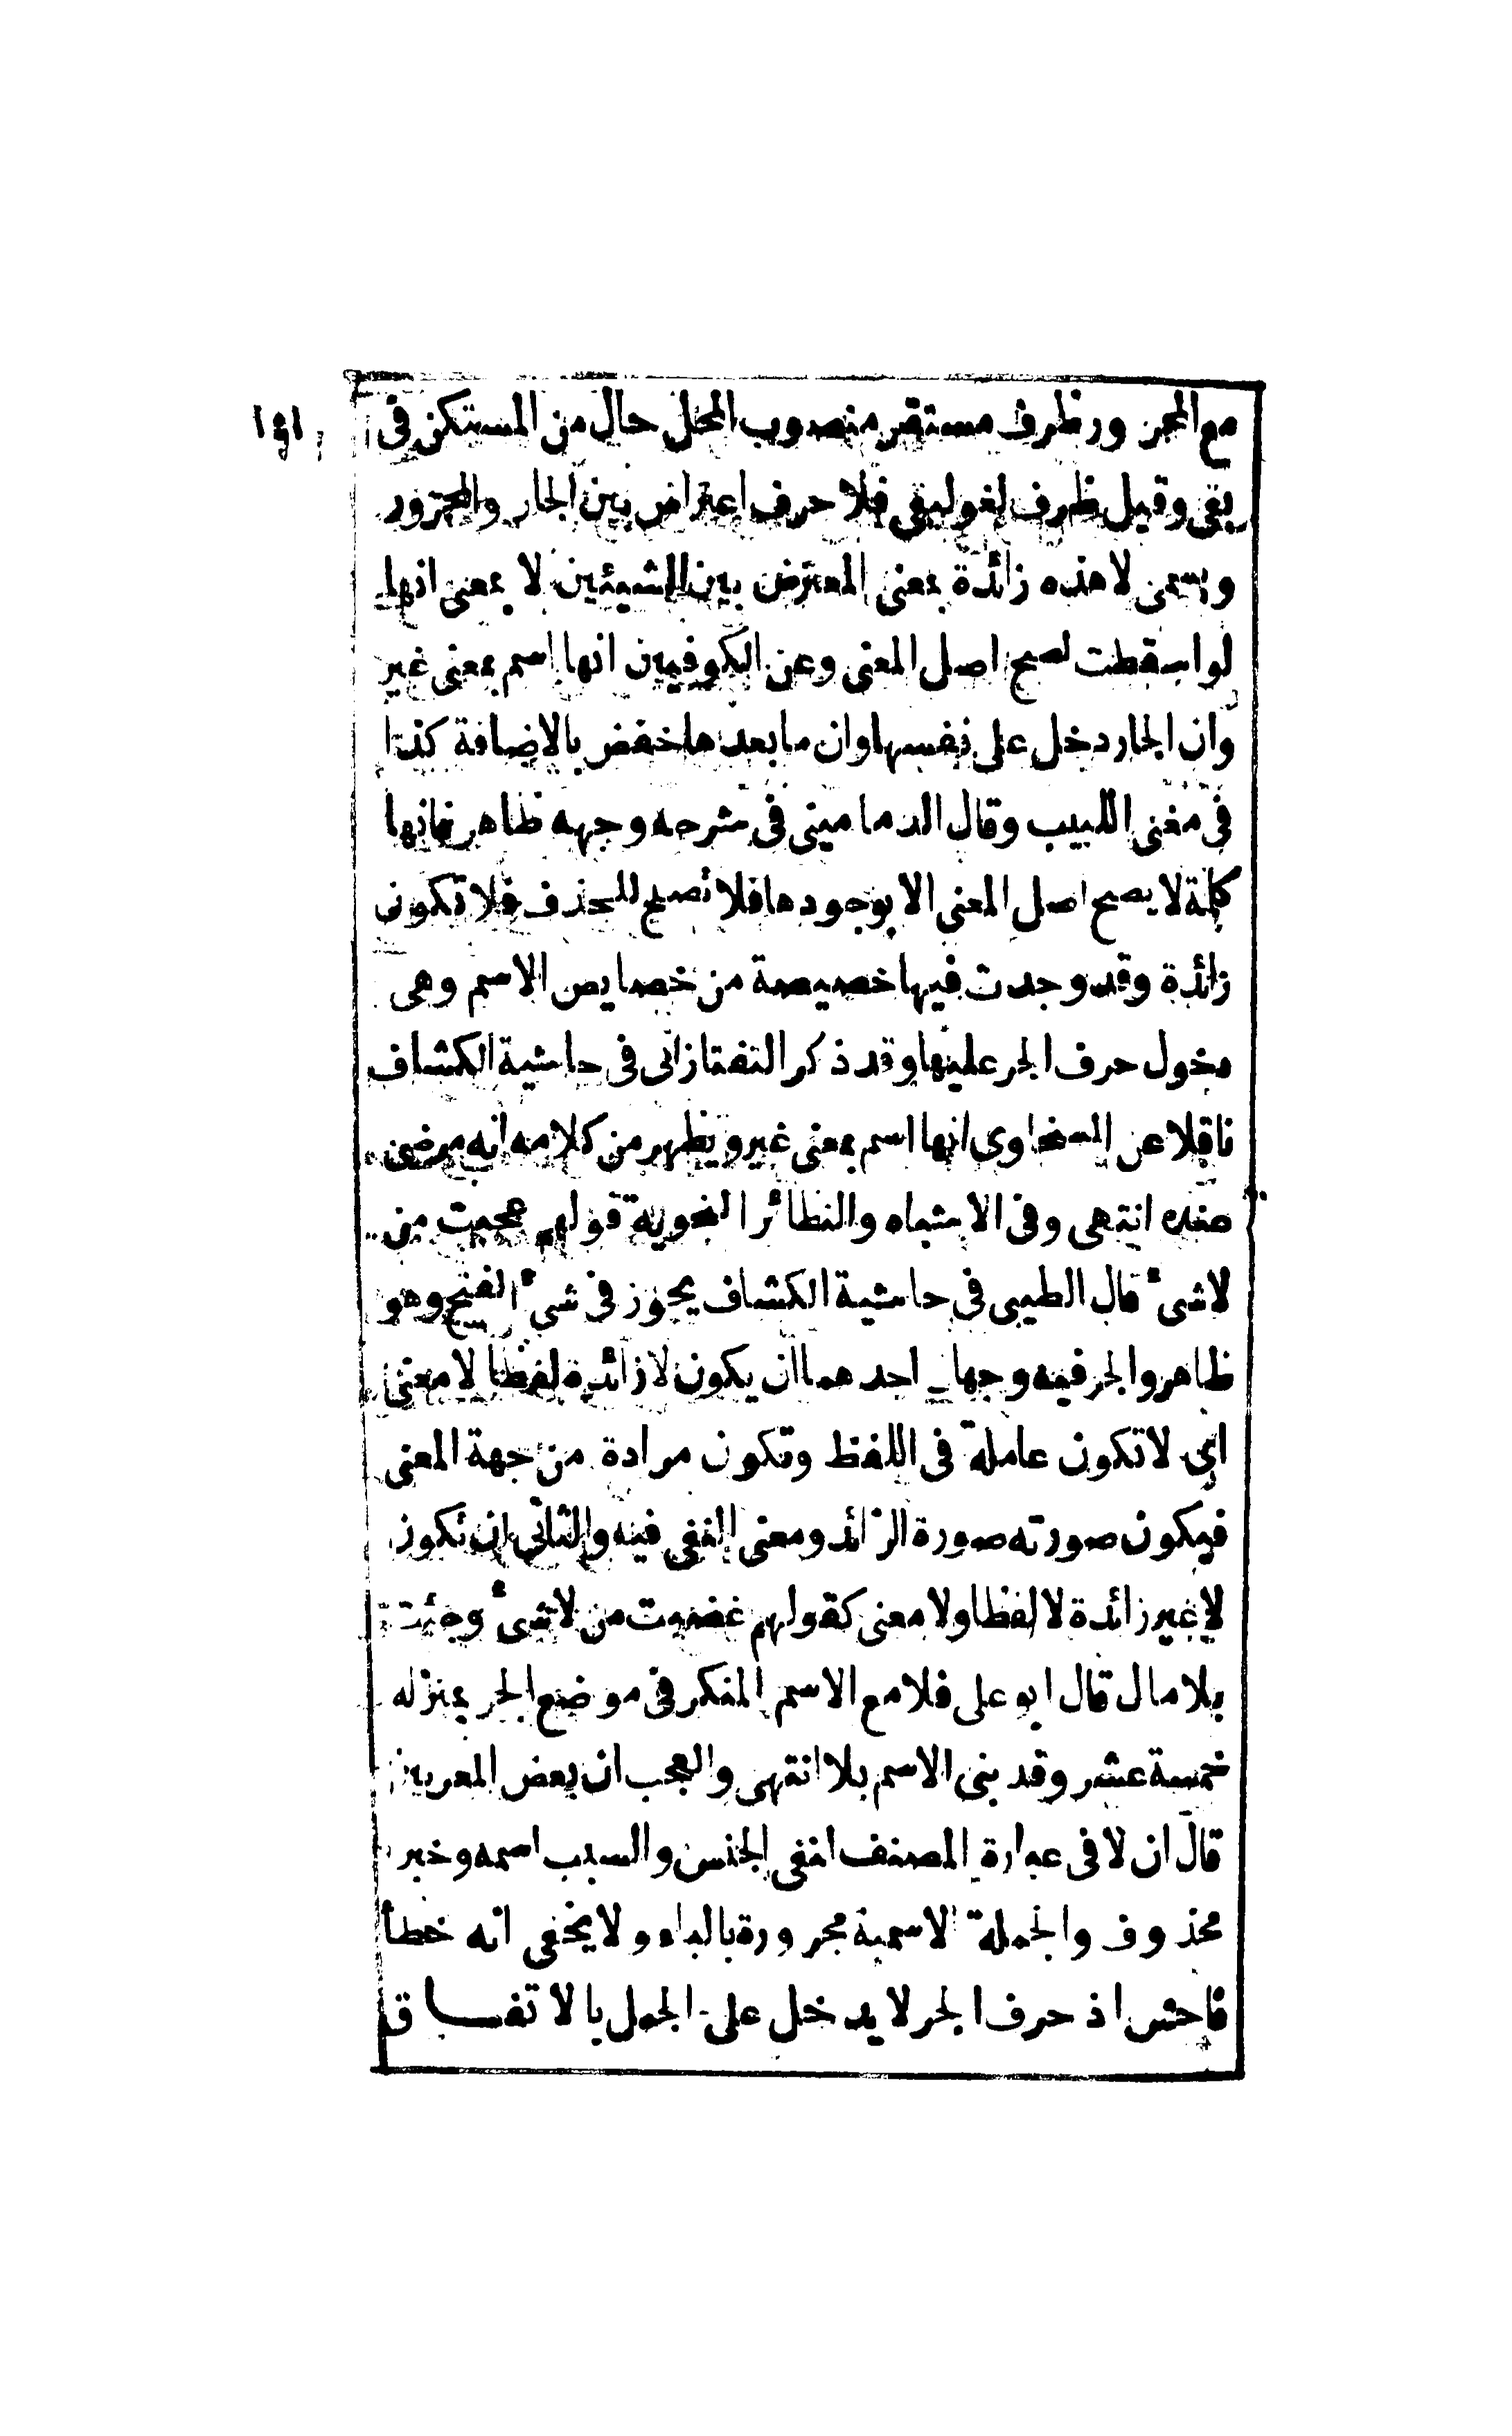 ١٤١
مع المجرور ظرف مستقر منصوب المحل حال من المستكن فى
يبقى وقيل ظرف لغو ليبقى فلا حرف اعتراض بين الجار والمجرور
ويسمى لا هذه زائدة بمعنى المعترض بين الشيئين لا بمعنى انها
لو اسقطت لصح اصل المعنى وعن الكوفيين انها اسم بمعنى غير
وان الجار دخل على نفسها وان ما بعدها خفض بالاضافة كذا
فى مغنى اللبيب وقال الدمامينى فى شرحه وجهه ظاهر فانها
كلمة لا يصح اصل المعنى الا بوجودها فلا تصلح للحذف فلا تكون
زائدة وقد وجدت فيها خصيصة من خصايص الاسم وهى
دخول حرف الجر عليها وقد ذكر التفتازانى فى حاشية الكشاف
ناقلا عن السخاوى انها اسم بمعنى غير ويظهر من كلامه انه مرضى
عنده انتهى وفى الاشباه والنظائر النحوية قولهم عجبت من
لا شئ قال الطيبى فى حاشية الكشاف يجوز فى شئ الفتح وهو
ظاهر والجر فيه وجهان احدهما ان يكون لا زائدة لفظا لا معنى
اى لا تكون عاملة فى اللفظ وتكون مرادة من جهة المعنى
فيكون صورته صورة الزائد ومعنى النفى فيه والثانى ان تكون
لا غير زائدة لا لفظا ولا معنى كقولهم غضبت من لا شئ وجئت
بلا مال قال ابو على فلا مع الاسم المنكر فى موضع الجر بمنزله
خمسة عشر وقد بنى الاسم بلا انتهى والعجب ان بعض المعربين
قال ان لا فى عبارة المصنف لنفى الجنس والسبب اسمه وخبره
محذوف والجملة الاسمية مجرورة بالباء ولا يخفى انه خطأ
فاحش اذ حرف الجر لا يدخل على الجمل بالاتفاق